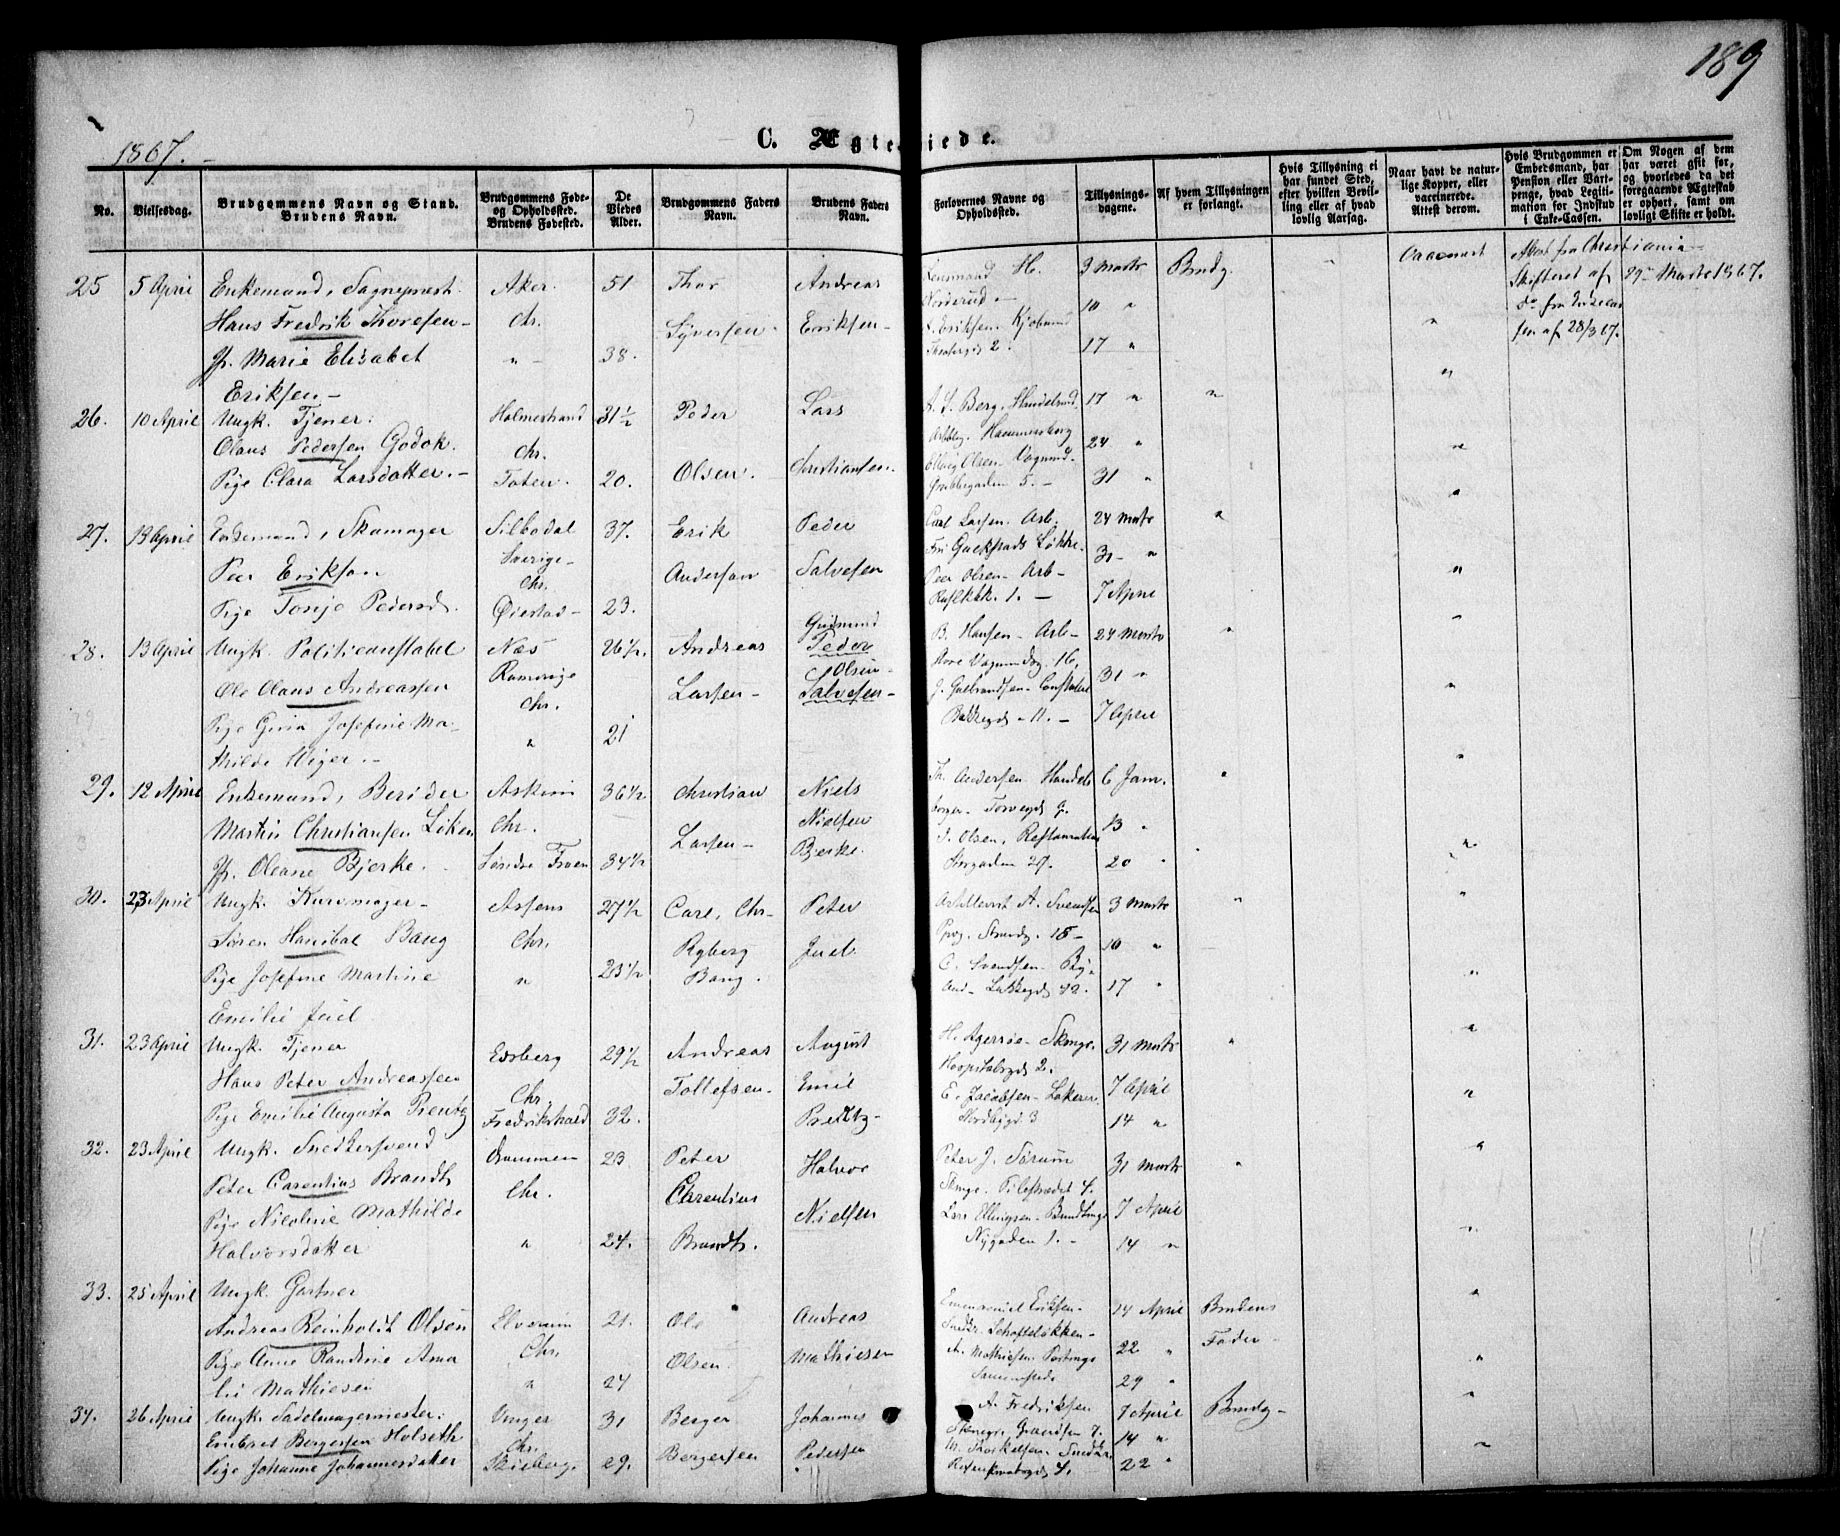 189
1867.
C. Ægteviede.
No.
Vielsesdag.
Brudgommens Navn og Stand. Brudens Navn.
Brudgommens Føde- og Opholdssted. Brudens Fødested.
De Viedes Alder.
Brudgommens Faders Navn.
Brudens Faders Navn.
Forlovernes Navne og Opholdssted.
Tillysnings-dagene.
Af hvem Tillysningen er forlangt.
Hvis Tillysning ei har fundet Sted, efter hvilken Bevilling eller af hvad lovlig Aarsag.
Naar havt de naturlige Kopper, eller vaccinerede. Attest derom.
Hvis Brudgommen er Embedsmand, har Pension eller Vartpenge, hvad Legitimation for Indskud i Enke-Cassen.
Om Nogen af dem har været gift før, og hvorledes da det foregaaende Ægteskab er ophørt, samt om lovligt Skifte er holdt.
25 5 April Enkemand, Sagnepræst. Aker. 51 Thor Andreas Lensmand H. 3 Marts Brudg. Vaccinert Attest fra Christiania
Hans Fredrik Thoresen Chr. Syversen Eriksen Norderud 10 " Skifteret af 29 Marts 1867.
Jfr. Marie Elisabet " 38. Eriksen 17 " af 28/3 67.
Eriksen
26. 10 April Ungk. Tjener. Holmestrand 31½ Peder Lars A. S. Berg, Handelsmd. 17 " "
Olaus Pedersen Godok. Chr. Hammersborg 24 "
Pige Clara Larsdatter. Toten. 20. Olsen. Christiansen. Olsen Vognmd. 31 "
Grubbegaden 5.
27. 13 April Enkemand, Skomager Silbodal 37. Erik Peder Carl Larsen. Arb. 24 Marts "
Peer Erikson Sverige Chr. Anderson Salvesen Løkke. 31 "
Pige Tonje Pedersd. Øiestad 23. Peer Olsen Arb 7 April
28. 13 April Ungk. Politieonstabel Næs 26½. Andreas Gudmund Peder B. Hansen Arb 24 Marts "
Ole Olaus Andreassen Romerige Chr. Larsen Olsen Salvesen Store Vognmdsg. 16, 31 "
Pige Gina Josefine Ma- " 21 J. Gulbrandsen Constabel 7 April
thilde Wiger. Bakkegd. 11.
29. 12 April Enkemand, Berider Askim 36½ Christian Niels Th. Andersen Handels 6 Jan. "
Martin Christiansen Løken Chr. Larsen Nielsen borger Torvegd. 9. 13 "
Jfr. Oleane Bjerke. Søndre Froen 34½ Bjerke. J. Olsen, Restauration 20 "
Storgaden 27.
30. 23 April Ungk. Kurvmager Assens 27½ Carl, Chr. Peter Artillerist A. Svendsen 3 Marts "
Søren Hanibal Bang Chr. Ryberg Juel. Strandg. 15 10 "
Pige Josefine Martine " 23½ Bang. C. Svendsen 17 "
Emilie Juel Lakkegd. 42.
31. 23 April Ungk. Tjener Edsberg 29½ Andreas August H. Agersøe 31 Marts "
Hans Peter Andreassen Chr. Tollefsen Emil Hospitalsgd. 2. 7 April
Pige Emilie Augusta Preutz Fredrikshald 32. Preutz E. Jacobsen Lakerer. 14 "
Nordbygd. 3
32. 23 April Ungk. Snedkersvend Drammen 23 Peter Halvor Peter J. Sørum 31 Marts "
Peter Carentius Brandt Chr. Chrentius Nielsen Pilestrædet 4. 7 April
Pige Nicoline Mathilde Lars Ellingsen 14 "
Halvorsdatter " 24. Brandt. Nygaden 1.
33. 25 April Ungk. Gartner
Andreas Reinholdt Olsen Elverum 21. Ole Andreas Emmanuel Eriksen 14 April Brudens
Pige Anne Randine Ama Chr. Olsen. Mathiesen Snedkr. Schafteløkken 22 " Fader
lie Mathiesen " 24 A. Mathiesen 29 "
Sammesteds
34. 26 April Ungk. Sadelmagermester. Vinger 31 Berger Johannes A. Fredriksen 7 April Brudg
Embret Bergersen Holseth Chr. Grændsen 7. 14 "
Pige Johanne Johannesdatter Skiberg. 29. Bergersen Pedersen M. Thorkelsen. Snedkr. 22 "
Rosenkrantzgd. 4.